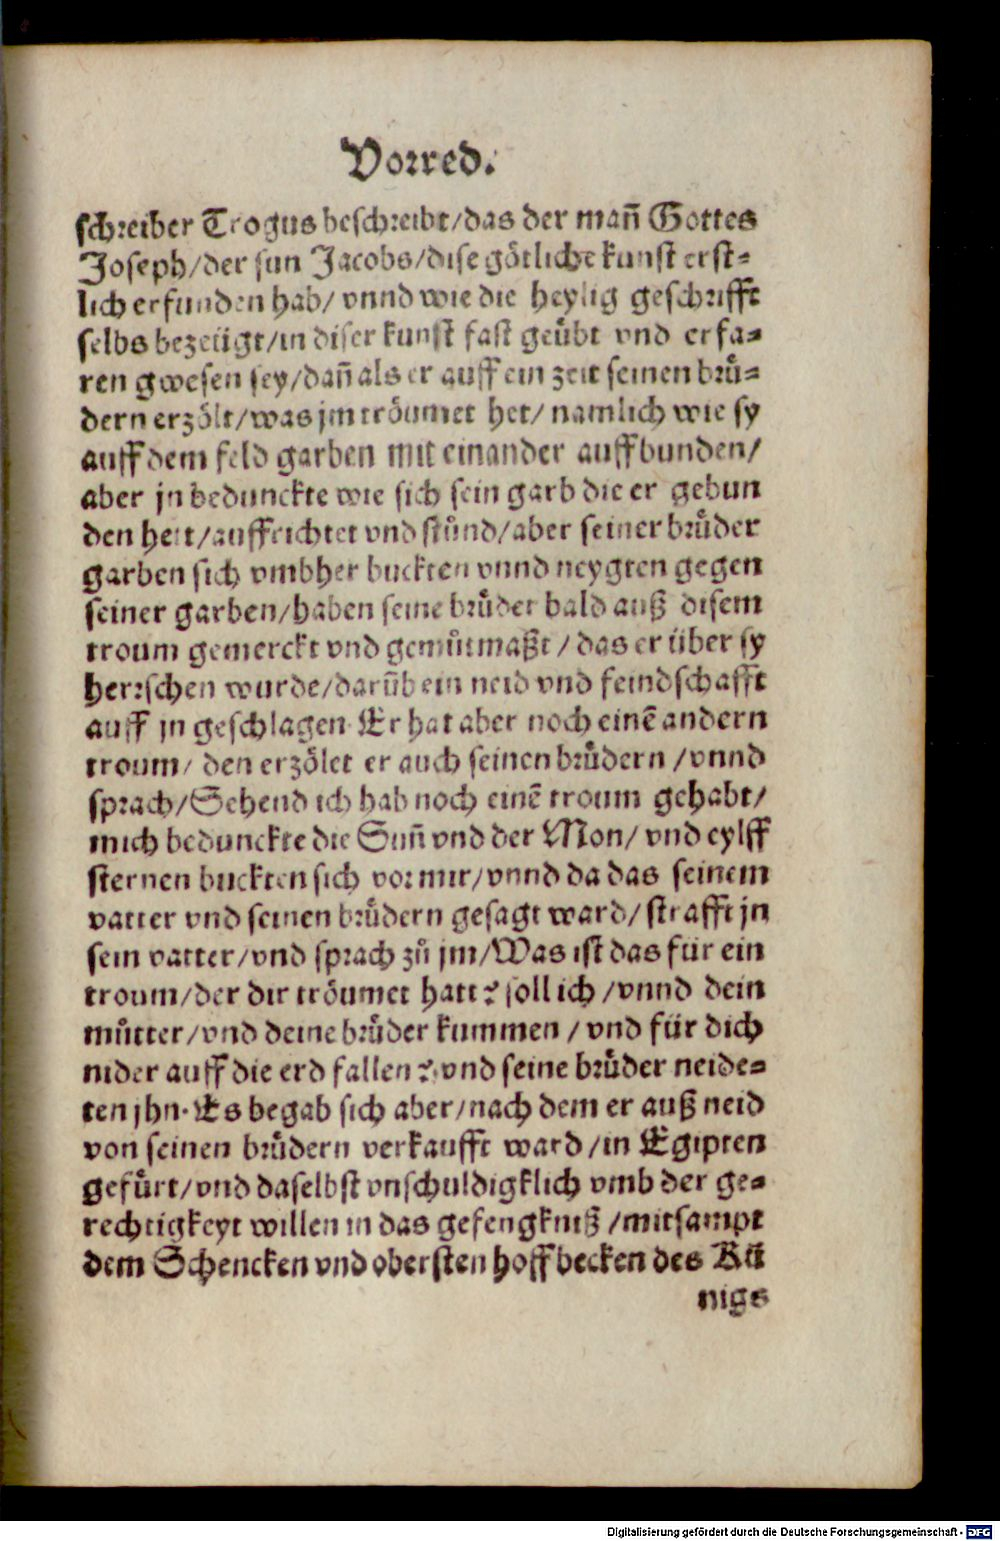 Vorred.
schreiber Trogus beschreibt/das der mañ Gottes
Joseph/der sun Jacobs/dise götliche kunst erst-
lich erfunden hab/ vnnd wie die heylig geschrifft
selbs bezeügt/in diser kunst fast geübt vnd erfa-
ren gwesen sey/dañ als er auff ein zeit seinen brů-
dern erzölt/was jm tröumet het/ namlich wie sy
auff dem feld garben mit einander auffbunden/
aber jn bedunckte wie sich sein garb die er gebun
den hett/auffrichtet vnd stůnd/aber seiner brůder
garben sich vmbher buckten vnnd neygten gegen
seiner garben/haben seine brůder bald auß disem
troum gemerckt vnd gemůtmaßt/das er über sy
herrschen wurde/darüb ein neid vnd feindschafft
auff jn geschlagen. Er hat aber noch einẽ andern
troum/ den erzölet er auch seinen brůdern /vnnd
sprach/Sehend ich hab noch einẽ troum gehabt/
mich beduncktedie Suñ vnd der Mon/ vnd eylff
sternen buckten sich vor mir/vnnd da das seinem
vatter vnd seinen brůdern gesagt ward/strafft jn
sein vatter/vnd sprach zů jm/Was ist das für ein
troum/der dir tröumet hatt? soll ich /vnnd dein
můtter/vnd deine brůder kummen / vnd für dich
nider auff die erd fallen? vnd seine brůder neide-
ten jhn. Es begab sich aber/nach dem er auß neid
von seinen brůdern verkaufft ward/in Egipten
gefürt/vnd daselbst vnschuldigklich vmb der ge-
rechtigkeyt willen in das gefengkniß /mitsampt
dem Schencken vnd obersten hoffbecken des Kü
nigs
Digitalisierung gefördert durch die Deutsche Forschungsgemeinschaft - DFG